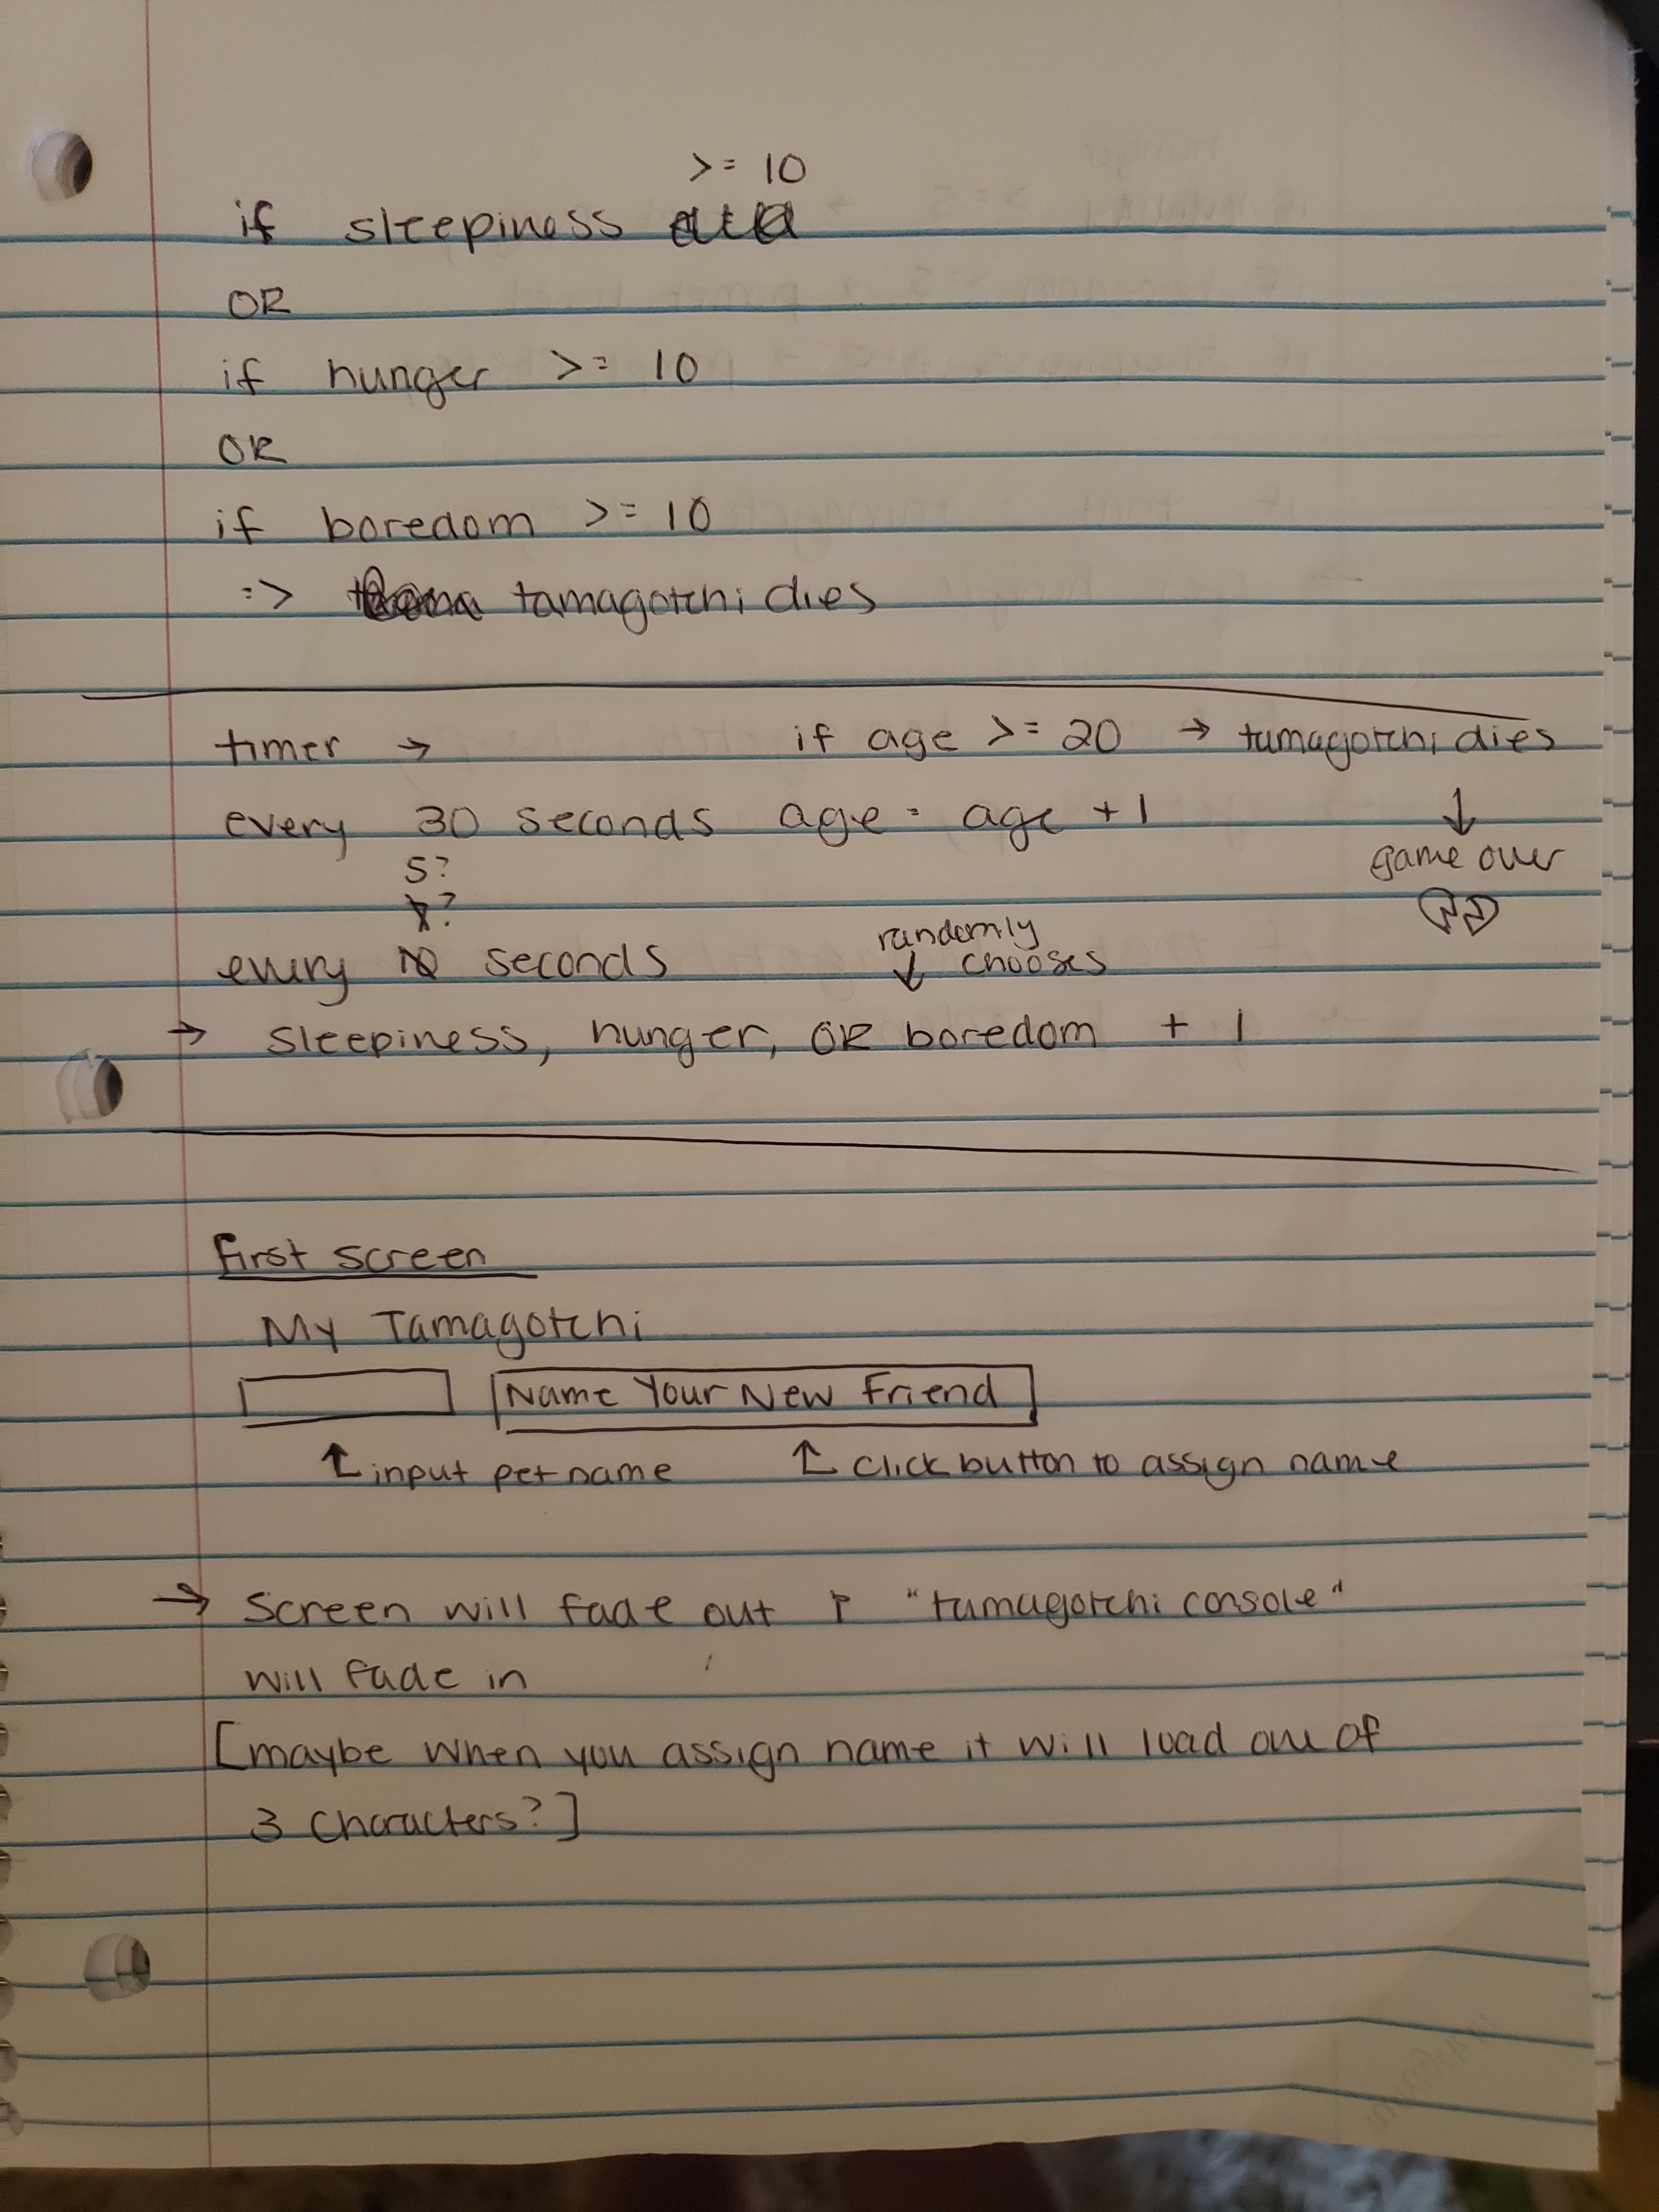 >= 10
if sleepiness
OR
if hunger >= 10
OR
if boredom >= 10
=> tamagotchi dies
timer → if age >= 20 → tamagotchi dies
every 30 seconds age = age + 1 ↓
game over
5?
?
randomly
every seconds ↓ chooses
→ sleepiness, hunger, OR boredom + 1
First screen
My Tamagotchi
Name Your New Friend
↑ input pet name ↑ click button to assign name
→ Screen will fade out & "tamagotchi console"
will fade in
[maybe when you assign name it will load one of
3 characters?]